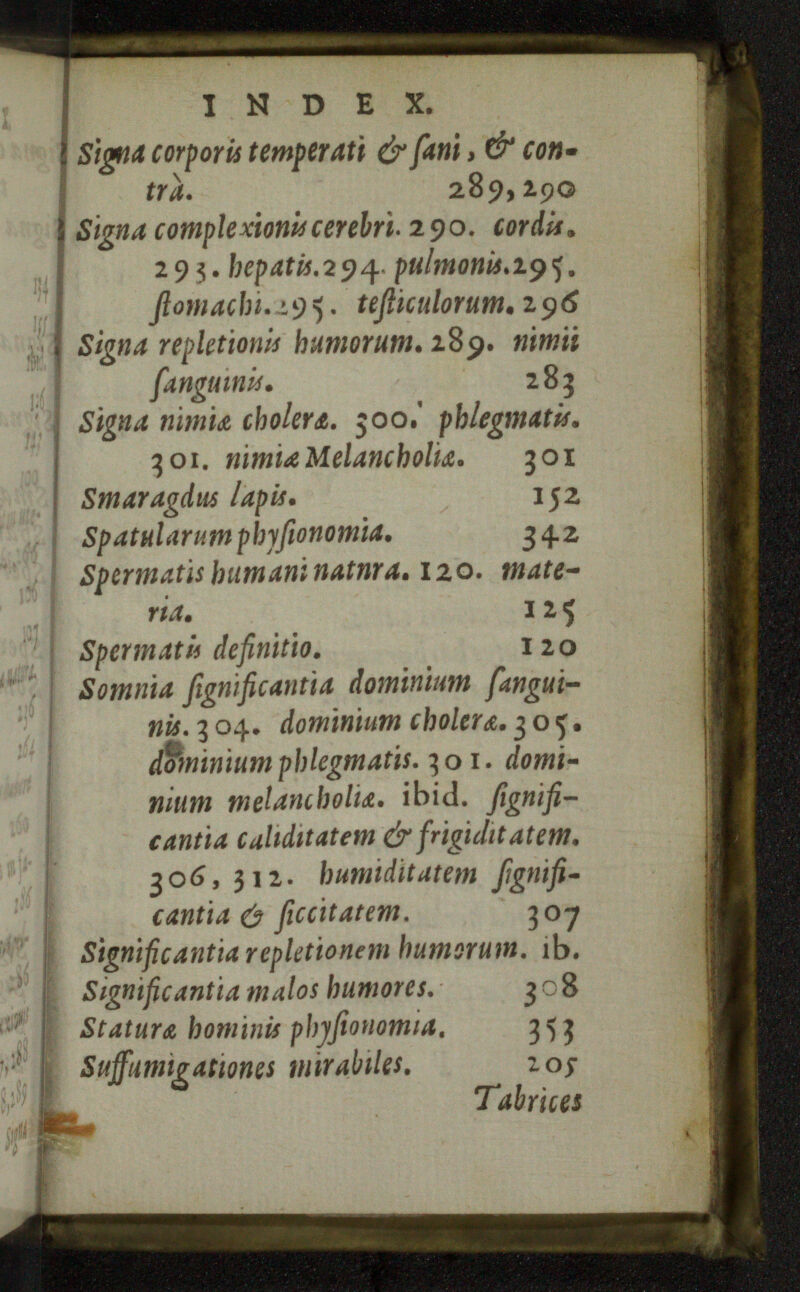 INDEX.
Signa corporis temperati & ſani, & con-
trà. 289, 290
Signa complexionis cerebri. 290. cordis.
293. hepatis. 294. pulmonis. 295.
ſtomachi. 295. teſticulorum. 296
Signa repletionis humorum. 289. nimii
ſanguinis. 283
Signa nimiæ choleræ. 300. phlegmatis.
301. nimiæ Melancholiæ. 301
Smaragdus lapis. 152
Spatularum phyſionomia. 342
Spermatis humani natnra. 120. mate-
ria. 125
Spermatis definitio. 120
Somnia ſignificantia dominium ſangui-
nis. 304. dominium choleræ. 305.
dominium phlegmatis. 301. domi-
nium melancholiæ. ibid. ſignifi-
cantia caliditatem & frigiditatem.
306, 312. humiditatem ſignifi-
cantia & ſiccitatem. 307
Significantia repletionem humorum. ib.
Significantia malos humores. 308
Staturæ hominis phyſionomia. 353
Suffumigationes mirabiles. 205
Tabrices